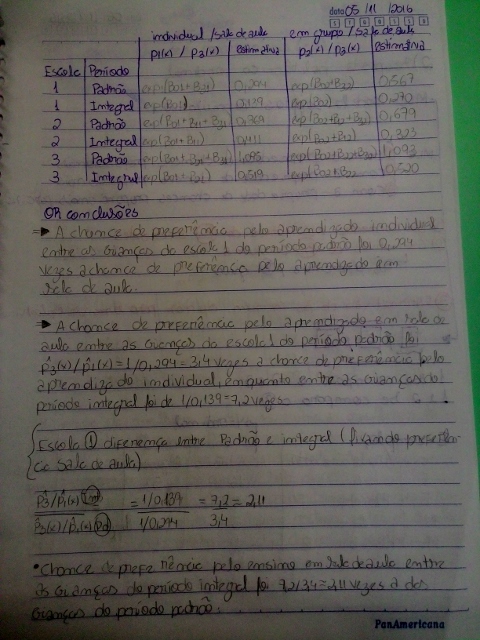 data 05 / 11 / 2016
individual / sala de aula em grupo / sala de aula
p1(x) / p3(x) Estimativa p2(x) / p3(x) Estimativa
Escola Período
1 Padrão exp(β01+β21) 0,294 exp(β02+β22) 0,567
1 Integral exp(β01) 0,139 exp(β02) 0,270
2 Padrão 0,679
2 Integral 0,411 0,323
3 Padrão 1,085 1,093
3 Integral 0,519 0,520
OR conclusões
→ A chance de preferência pelo aprendizado individual
entre as crianças da escola 1 do período padrão foi 0,294
vezes a chance de preferência pelo aprendizado em
sala de aula.
→ A chance de preferência pelo aprendizado em sala de
aula entre as crianças da escola 1 do período padrão foi
p̂3(x)/p̂1(x) = 1/0,294 = 3,4 vezes a chance de preferência pelo
aprendizado individual, enquanto entre as crianças do
período integral foi de 1/0,139 = 7,2 vezes.
Escola 1 diferença entre Padrão e integral (fixando preferên-
cia sala de aula)
p̂3/p̂1(x) Int = 1/0,139 = 7,2 = 2,11
p̂3(x)/p̂1(x) Pd 1/0,294 3,4
• Chance de preferência pelo ensino em sala de aula entre
as crianças do período integral foi 7,2/3,4 = 2,11 vezes a das
crianças do período padrão.
PanAmericana